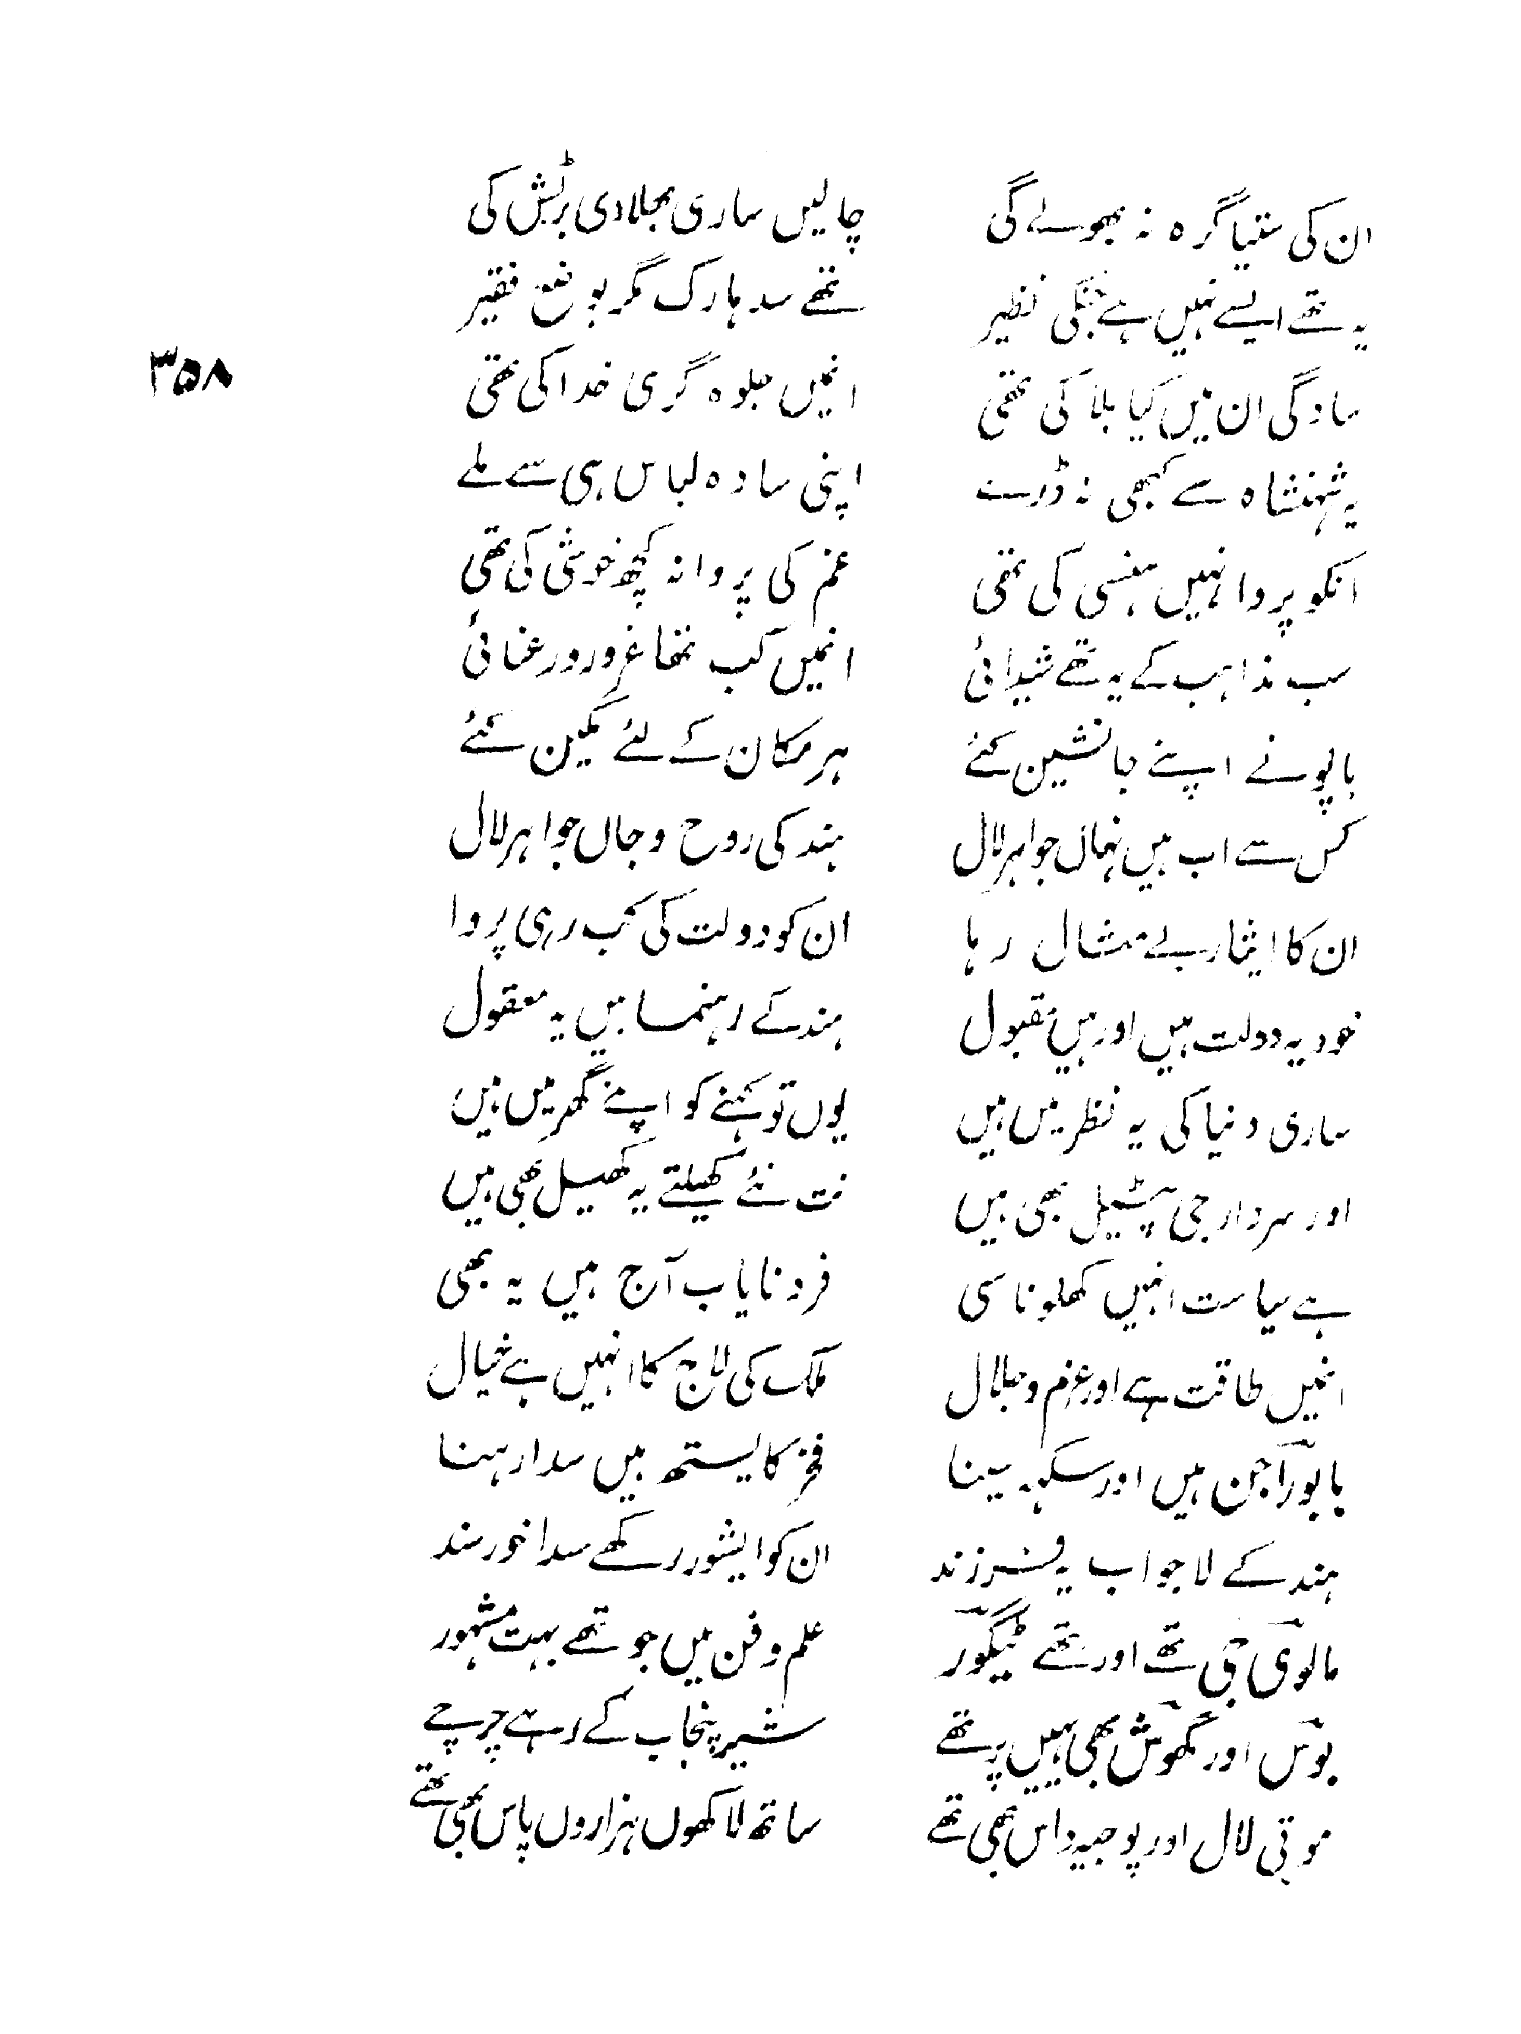 ان کی ستیاگرہ نہ بھولے گی
چالیں ساری بھلادی برٹش کی
یہ تھے ایسے نہیں ہے جنکی نظیر
تھے سدہارک مگر بوضع فقیر
سادگی ان میں کیا بلا کی تھی
انمیں جلوہ گری خدا کی تھی
۳۵۸
یہ شہنشاہ سے کبھی نہ ڈرے
اپنی سادہ لباس ہی سے ملے
انکو پروا نہیں ہنسی کی تھی
غم کی پروا نہ کچھ خوشی کی تھی
سب مذاہب کے یہ تھے شیدائی
انمیں کب تھا غرور و رعنائی
باپو نے اپنے جانشین کئے
ہر مکان کے لئے نگین کئے
کس سے اب ہیں نہاں جواہر لال
ہند کی روح و جاں جواہر لال
ان کا ایثار بے مثال رہا
ان کو دولت کی کب رہی پروا
خود یہ دولت ہیں اور ہیں مقبول
ہند کے رہنما ہیں یہ معقول
ساری دنیا کی یہ نظر میں ہیں
یوں تو کہنے کو اپنے گھر میں ہیں
اور سردار جی پٹیل بھی ہیں
نت نئے کھیلتے یہ کھیل بھی ہیں
ہے سیاست انہیں کھلونا سی
فرد نایاب آج ہیں یہ بھی
انمیں طاقت ہے اور عزم و جلال
ملک کی لاج کا انہیں ہے خیال
بابو راجن ہیں اور سکہہ سینا
فخر کایستھ ہیں سدا رہنا
ہند کے لاجواب یہ فرزند
ان کو ایشور رکھے سدا خورسند
مالوی جی تھے اور تھے ٹیگور
علم و فن میں جو تھے بہت مشہور
بوس اور گھوش بھی یہیں پر تھے
شیر پنجاب کے رہے چرچے
موتی لال اور پوجیہ داس بھی تھے
ساتھ لاکھوں ہزاروں پاس بھی تھے